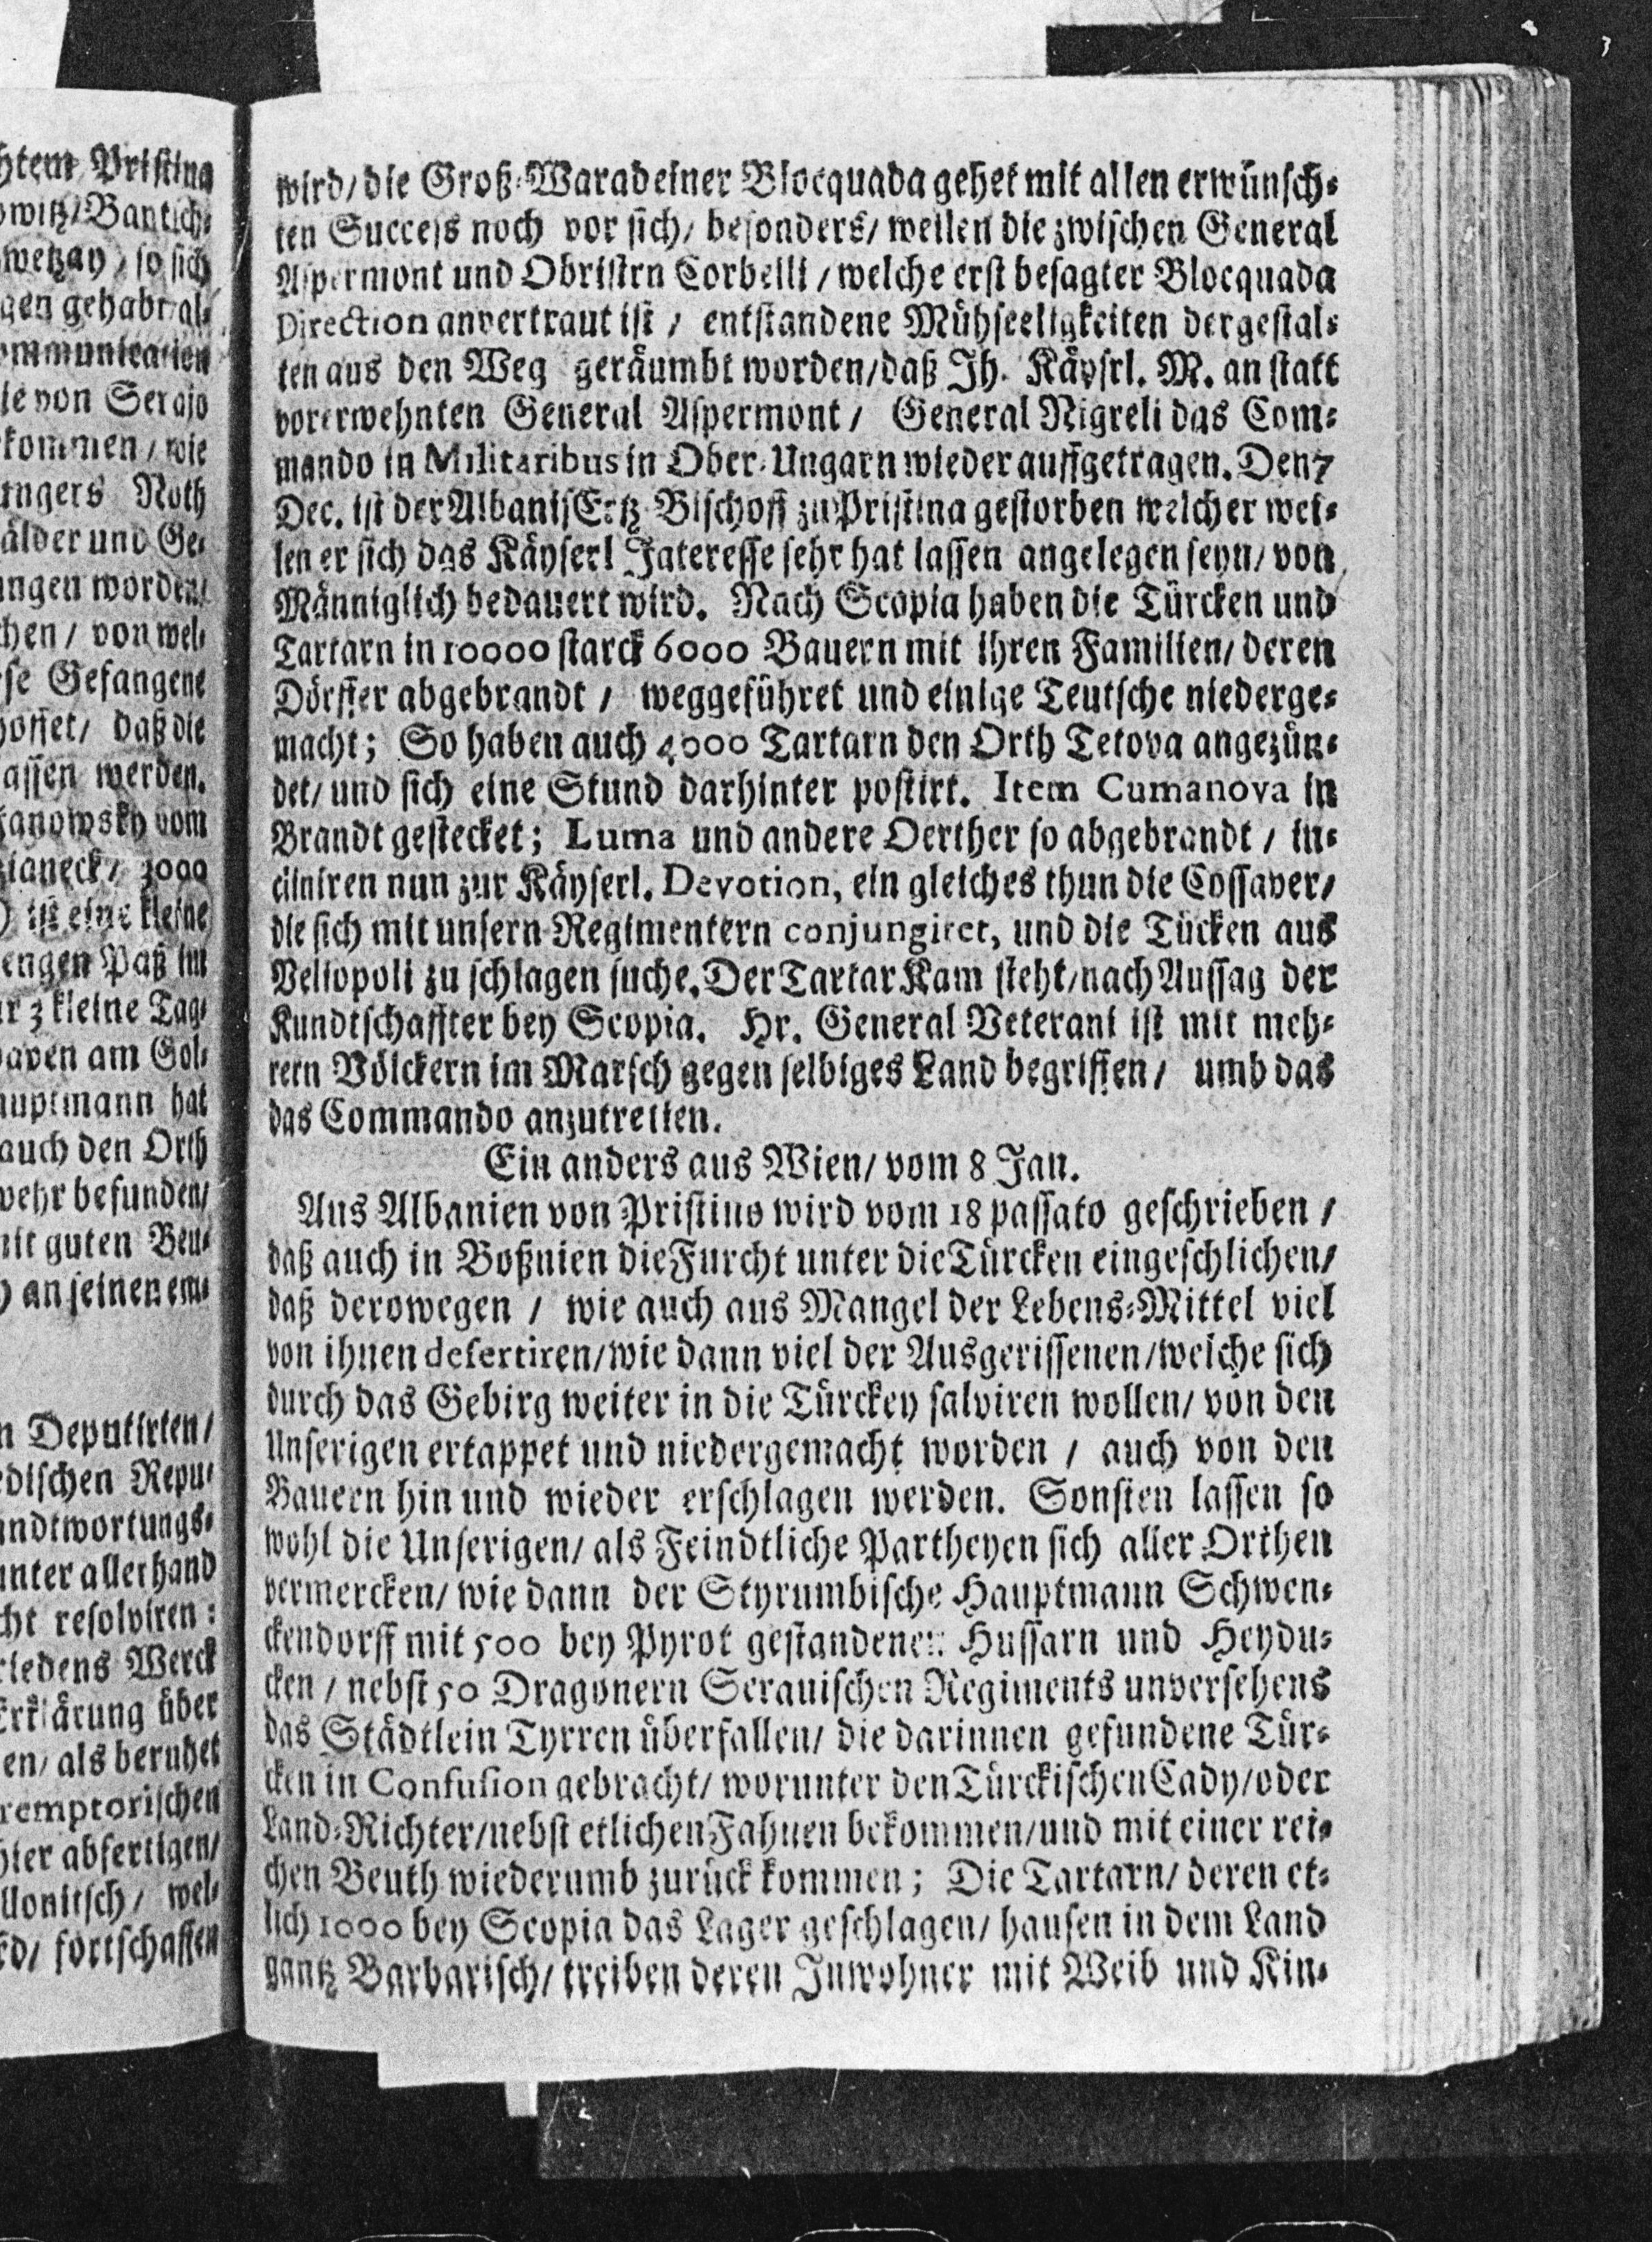 htem Pristina
owitz/ Bantsch-
wetzay / so sich
gen gehabt/ al-
ommunication
ie von Serajo
kommen / wie
ungers Noth
älder und Ge-
ungen worden/
chen / von wel-
se Gefangene
hoffet/ daß die
assen werden.
Janowsky vom
zianeck/ 3000
) ist eine kleine
engen Paß im
ur 3 kleine Tag-
daven am Gol-
auptmann hat
auch den Orth
wehr befunden/
mit guten Beu-
) an seinen em-
n Deputirten/
edischen Repu-
andtwortungs-
unter allerhand
cht resolviren:
riedens Werck
Erklärung über
en/ als beruhet
remptorischen
hier abfertigen/
llonitsch/ wel-
rd/ fortschaffen
wird/ die Groß-Waradeiner Blocquada gehet mit allen erwünsch-
ten Success noch vor sich/ besonders/ weilen die zwischen General
Aspermont und Obristen Corbelli / welche erst besagter Blocquada
Direction anvertraut ist / entstandene Mühseeligkeiten dergestal-
ten aus den Weg geräumbt worden/ daß Ih. Käysrl. M. an statt
vorerwehnten General Aspermont / General Nigreli das Com-
mando in Militaribus in Ober-Ungarn wieder auffgetragen. Den 7
Dec. ist der Albanis Ertz-Bischoff zu Pristina gestorben welcher wei-
len er sich das Käyserl Interesse sehr hat lassen angelegen seyn/ von
Männiglich bedauert wird. Nach Scopia haben die Türcken und
Tartarn in 10000 starck 6000 Bauern mit ihren Familien/ deren
Dörffer abgebrandt / weggeführet und einige Teutsche niederge-
macht; So haben auch 4000 Tartarn den Orth Tetova angezün-
det/ und sich eine Stund darhinter postirt. Item Cumanova in
Brandt gestecket; Luma und andere Oerther so abgebrandt / in-
cliniren nun zur Käyserl. Devotion, ein gleiches thun die Cossaver/
die sich mit unsern Regimentern conjungiret, und die Tücken aus
Veliopoli zu schlagen suche. Der Tartar Kam steht/ nach Aussag der
Kundtschaffter bey Scopia. Hr. General Veterani ist mit meh-
rern Völckern im Marsch gegen selbiges Land begriffen / umb das
das Commando anzutretten.
Ein anders aus Wien/ vom 8 Jan.
Aus Albanien von Pristino wird vom 18 passato geschrieben /
daß auch in Boßnien die Furcht unter die Türcken eingeschlichen/
daß derowegen / wie auch aus Mangel der Lebens-Mittel viel
von ihnen desertiren/ wie dann viel der Ausgerissenen/ welche sich
durch das Gebirg weiter in die Türckey salviren wollen/ von den
Unserigen ertappet und niedergemacht worden / auch von den
Bauern hin und wieder erschlagen werden. Sonsten lassen so
wohl die Unserigen/ als Feindtliche Partheyen sich aller Orthen
vermercken/ wie dann der Styrumbische Hauptmann Schwen-
ckendorff mit 500 bey Pyrot gestandenen Hussarn und Heydu-
cken / nebst 50 Dragonern Serauischen Regiments unversehens
das Städtlein Tyrren überfallen/ die darinnen gefundene Tür-
cken in Confusion gebracht/ worunter den Türckischen Cady/ oder
Land-Richter/ nebst etlichen Fahnen bekommen/ und mit einer rei-
chen Beuth wiederumb zurück kommen; Die Tartarn/ deren et-
lich 1000 bey Scopia das Lager geschlagen/ hausen in dem Land
gantz Barbarisch/ treiben deren Inwohner mit Weib und Kin-